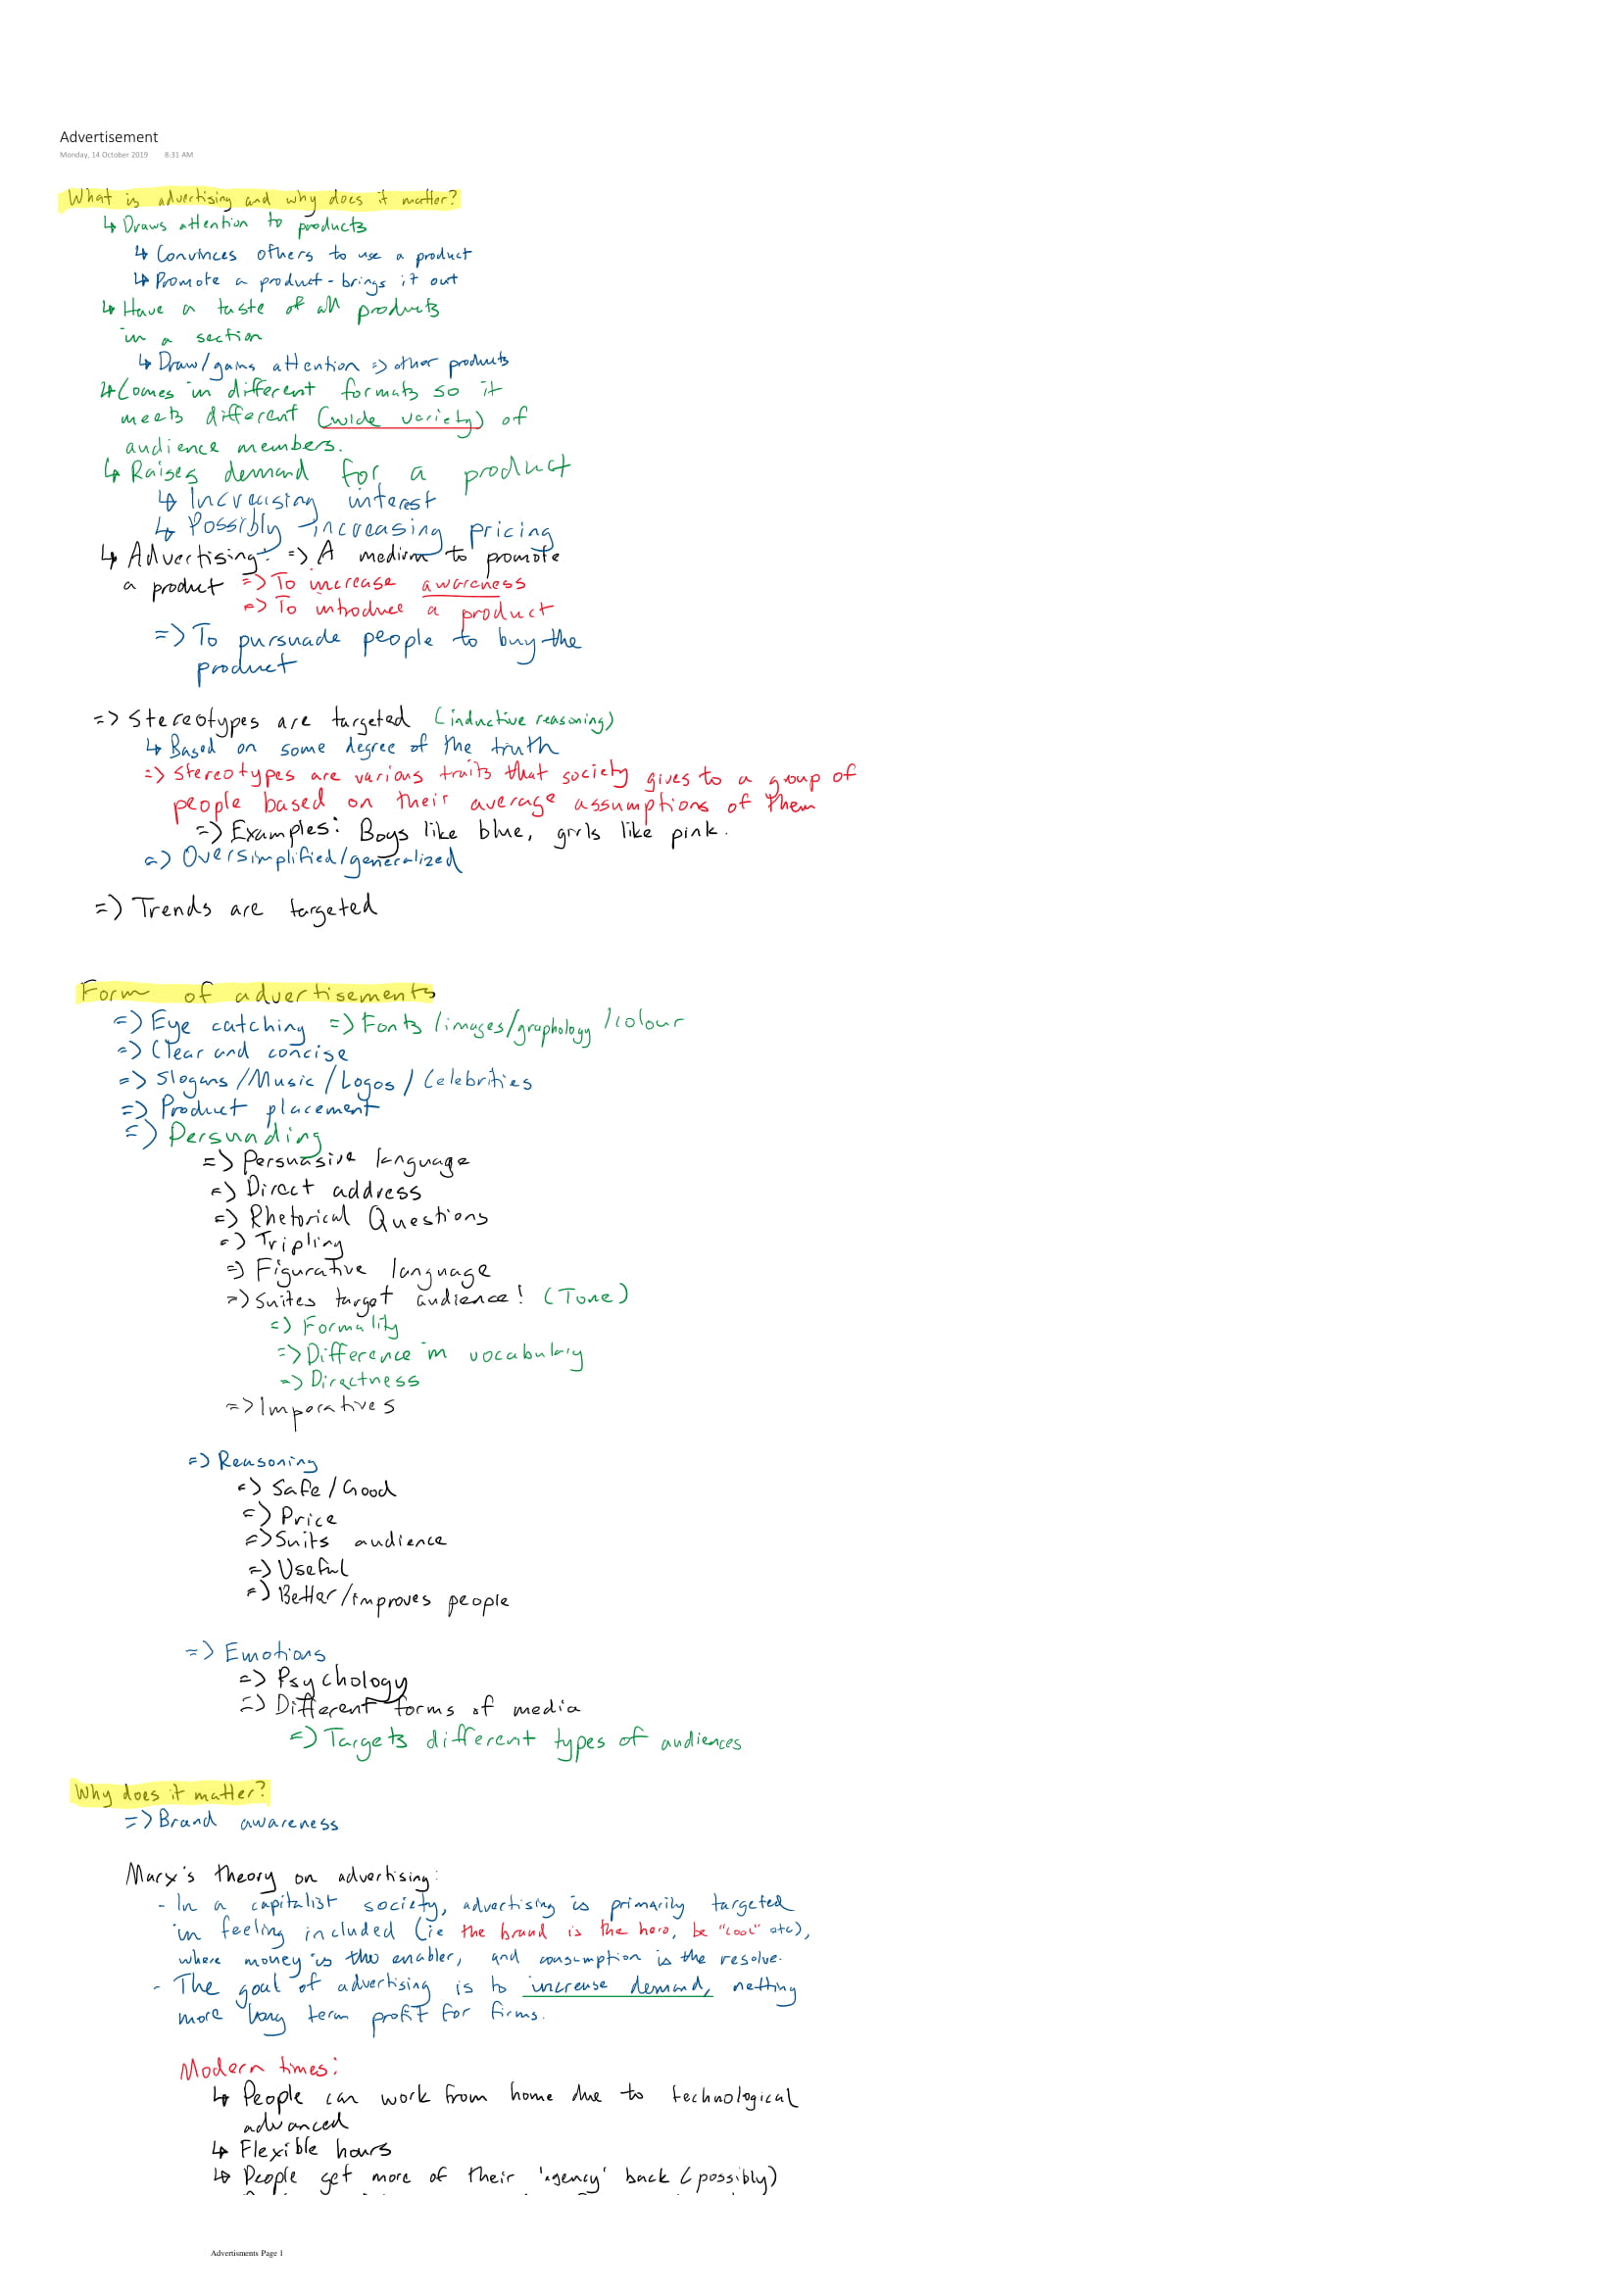 Advertisement
Monday, 14 October 2019 8:31 AM
What is advertising and why does it matter?
↳ Draws attention to products
↳ Convinces others to use a product
↳ Promote a product - brings it out
↳ Have a taste of all products
in a section
↳ Draw/gains attention => other products
↳ Comes in different formats so it
meets different (wide variety) of
audience members.
↳ Raises demand for a product
↳ Increasing interest
↳ Possibly increasing pricing
↳ Advertising: => A medium to promote
a product => To increase awareness
=> To introduce a product
=> To pursuade people to buy the
product
=> Stereotypes are targeted (inductive reasoning)
↳ Based on some degree of the truth
=> Stereotypes are various traits that society gives to a group of
people based on their average assumptions of them
=> Examples: Boys like blue, girls like pink.
=> Oversimplified/generalized
=> Trends are targeted
Form of advertisements
=> Eye catching => Fonts/images/graphology/colour
=> Clear and concise
=> Slogans/Music/Logos/Celebrities
=> Product placement
=> Persuading
=> Persuasive language
=> Direct address
=> Rhetorical Questions
=> Tripling
=> Figurative language
=> Suites target audience! (Tone)
=> Formality
=> Difference in vocabulary
=> Directness
=> Imperatives
=> Reasoning
=> Safe/Good
=> Price
=> Suits audience
=> Useful
=> Better/improves people
=> Emotions
=> Psychology
=> Different forms of media
=> Targets different types of audiences
Why does it matter?
=> Brand awareness
Marx's theory on advertising:
- In a capitalist society, advertising is primarily targeted
in feeling included (ie the brand is the hero, be "cool" etc),
where money is the enabler, and consumption is the resolve.
- The goal of advertising is to increase demand, netting
more long term profit for firms.
Modern times:
↳ People can work from home due to technological
advanced
↳ Flexible hours
↳ People get more of their 'agency' back (possibly)
Advertisments Page 1